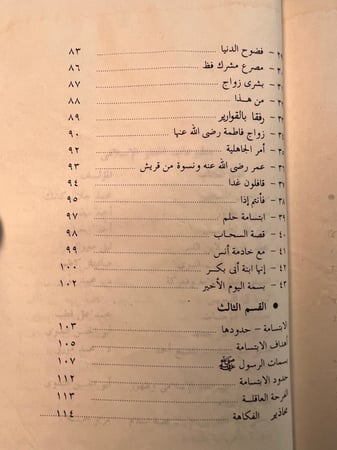 - فضوح الدنيا ٨٣
- مصرع مشرك فظ ٨٦
- بشرى زواج ٨٧
- من هذا ٨٨
- رفقا بالقوارير ٨٩
- زواج فاطمة رضى الله عنها ٩٠
- أمر الجاهلية ٩٢
- عمر رضى الله عنه ونسوة من قريش ٩٣
- قافلون غدا ٩٤
- فأنتم إذا ٩٥
٣٩ - ابتسامة حلم ٩٧
٤٠ - قصة السحاب ٩٨
٤١ - مع خادمة أنس ٩٩
٤٢ - إنها ابنة أبى بكر ١٠٠
٤٣ - بسمة اليوم الأخير ١٠٢
• القسم الثالث
لابتسامة - حدودها ١٠٣
أهداف الابتسامة ١٠٥
بسمات الرسول ﷺ ١٠٧
حدود الابتسامة ١١٢
الفرحة العاقلة ١١٣
محاذير الفكاهة ١١٤